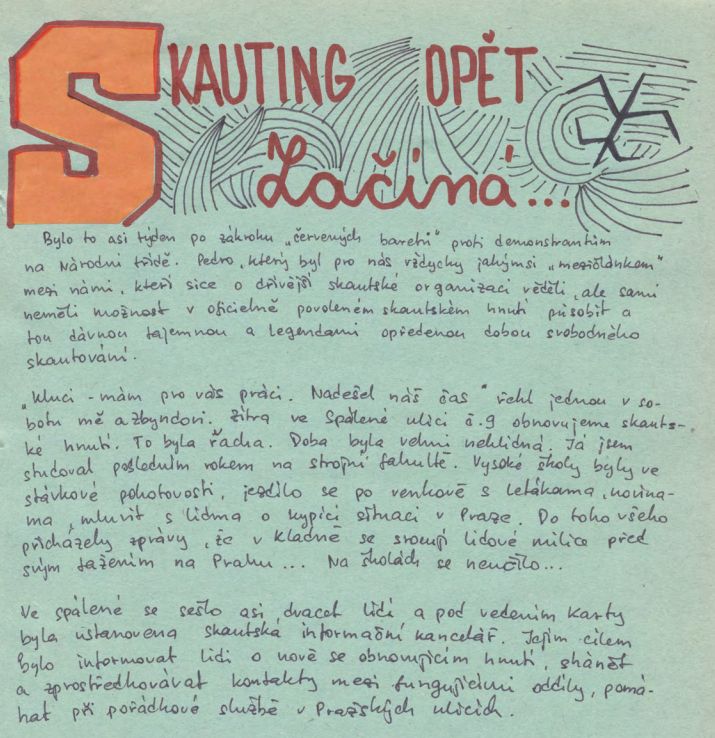 SKAUTING OPĚT
Začíná...
Bylo to asi týden po zákroku „červených baretů" proti demonstrantům
na Národní třídě. Pedro, který byl pro nás vždycky jakýmsi „mezičlánkem"
mezi námi, kteří sice o dřívější skautské organizaci věděli, ale sami
neměli možnost v oficielně povoleném skautském hnutí působit a
tou dávnou tajemnou a legendami opředenou dobou svobodného
skautování.
„Kluci - mám pro vás práci. Nadešel náš čas" řekl jednou v so-
botu mě a Zbyndovi. Zítra ve Spálené ulici č.9 obnovujeme skauts-
ké hnutí. To byla řacha. Doba byla velmi neklidná. Já jsem
studoval posledním rokem na strojní fakultě. Vysoké školy byly ve
stávkové pohotovosti, jezdilo se po venkově s letákama, novina-
ma, mluvit s lidma o kypící situaci v Praze. Do toho všeho
přicházely zprávy, že v Kladně se srocují lidové milice před
svým tažením na Prahu... Na školách se neučilo...
Ve Spálené se sešlo asi dvacet lidí a pod vedením Karty
byla ustanovena skautská informační kancelář. Jejím cílem
bylo informovat lidi o nově se obnovujícím hnutí, shánět
a zprostředkovávat kontakty mezi fungujícími oddíly, pomá-
hat při pořádkové službě v Pražských ulicích.